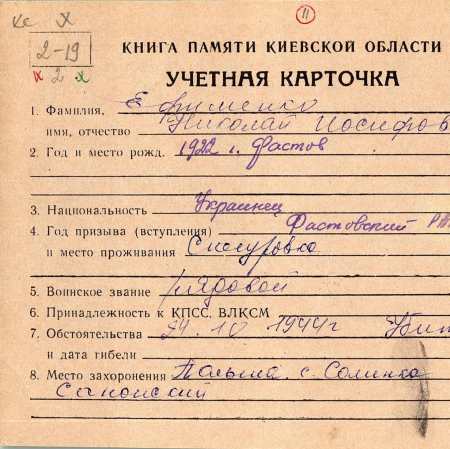 Ке Х
11
2-19
к 2 х
КНИГА ПАМЯТИ КИЕВСКОЙ ОБЛАСТИ
УЧЕТНАЯ КАРТОЧКА
1. Фамилия, Ефименко
имя, отчество Николай Иосифов
2. Год и место рожд. 1922 г. Фастов
3. Национальность Украинец
4. Год призыва (вступления) Фастовский
и место проживания
5. Воинское звание рядовой
6. Принадлежность к КПСС, ВЛКСМ
7. Обстоятельства 24. 10 1944г Убит
и дата гибели
8. Место захоронения Польша с. Солинка
Саноский